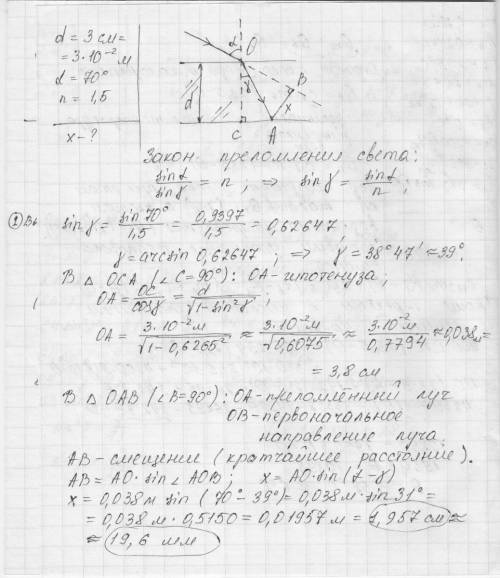 d = 3 см =
= 3·10⁻² м
α = 70°
n = 1,5
x - ?
α
O
B
d
γ
x
C
A
Закон преломления света:
sinα/sinγ = n, ⇒ sinγ = sinα/n;
sinγ = sin70°/1,5 = 0,9397/1,5 = 0,62647;
γ = arcsin 0,62647; ⇒ γ = 38°47' ≈ 39°.
В △ OCA (∠C=90°): OA - гипотенуза;
OA = OC/cosγ = d/√(1-sin²γ);
OA = 3·10⁻²м/√(1-0,6265²) ≈ 3·10⁻²м/√0,6075 ≈ 3·10⁻²м/0,7794 ≈ 0,038м =
= 3,8 см
В △ OAB (∠B=90°): OA - преломлённый луч
OB - первоначальное
направление луча.
AB - смещение (кратчайшее расстояние).
AB = AO · sin∠AOB; x = AO·sin(α-γ)
x = 0,038 м sin (70°-39°) = 0,038 м·sin31° =
= 0,038 м · 0,5150 = 0,01957 м = 1,957 см ≈
≈ 19,6 мм